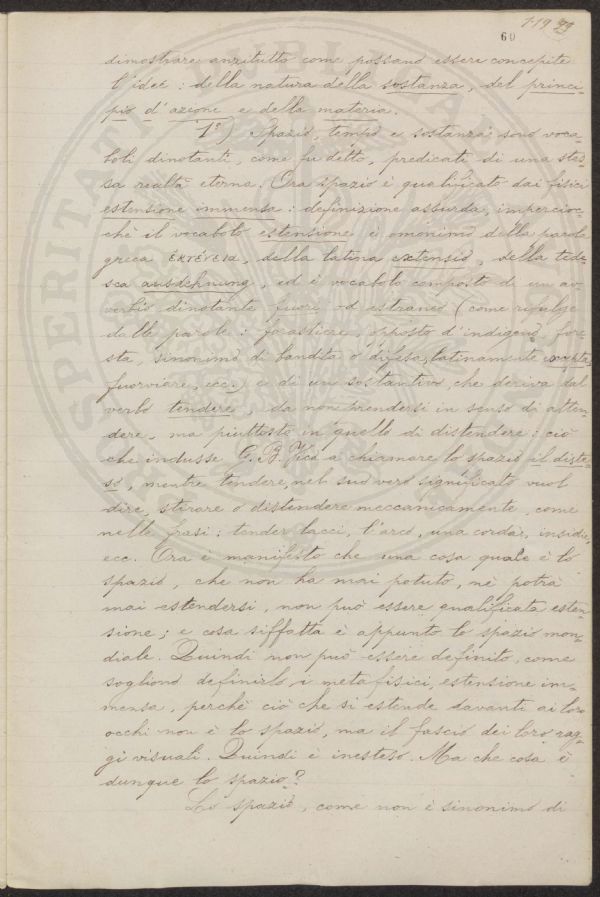 119
60
dimostrare anzitutto come possano essere concepite
l'idee: della natura della sostanza, del princi-
pio d'azione e della materia.
1º) Spazio, tempo e sostanza sono voca-
boli dinotanti, come fu detto, predicati di una stes-
sa realtà eterna. Ora spazio è qualificato dai fisici
estensione immensa: definizione assurda, impercioc-
chè il vocabolo estensione è omonimo della parola
greca ἐκτένεια, della latina extensio, della tede-
sca ausdehnung, ed è vocabolo composto di un av-
verbio dinotante fuori od estraneo (come rifulge
dalle parole: forastiere, opposto d'indigeno, fore-
sta, sinonimo di bandita o difesa, latinamente
fuorviare, ecc.) e di un sostantivo, che deriva dal
verbo tendere, da non prendersi in senso di atten-
dere, ma piuttosto in quello di distendere: ciò
che indusse G. B. Vico a chiamare lo spazio il diste-
so, mentre tendere, nel suo vero significato vuol
dire, stirare o distendere meccanicamente, come
nelle frasi: tender lacci, l'arco, una corda, insidie,
ecc. Ora è manifesto che una cosa quale è lo
spazio, che non ha mai potuto, nè potrà
mai estendersi, non può essere qualificata esten-
sione; e cosa siffatta è appunto lo spazio mon-
diale. Quindi non può essere definito, come
sogliono definirlo i metafisici, estensione im-
mensa, perchè ciò che si estende davanti ai loro
occhi non è lo spazio, ma il fascio dei loro rag-
gi visuali. Quindi è inesteso. Ma che cosa è
dunque lo spazio?
Lo spazio, come non è sinonimo di